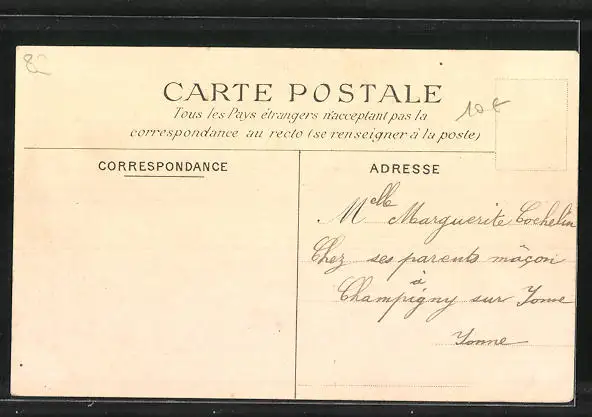 82
CARTE POSTALE
Tous les Pays étrangers n'acceptant pas la
correspondance au recto (se renseigner à la poste)
10 €
CORRESPONDANCE
ADRESSE
Melle Marguerite Cochelin
Chez ses parents mâçon
à
Champigny sur Yonne
Yonne